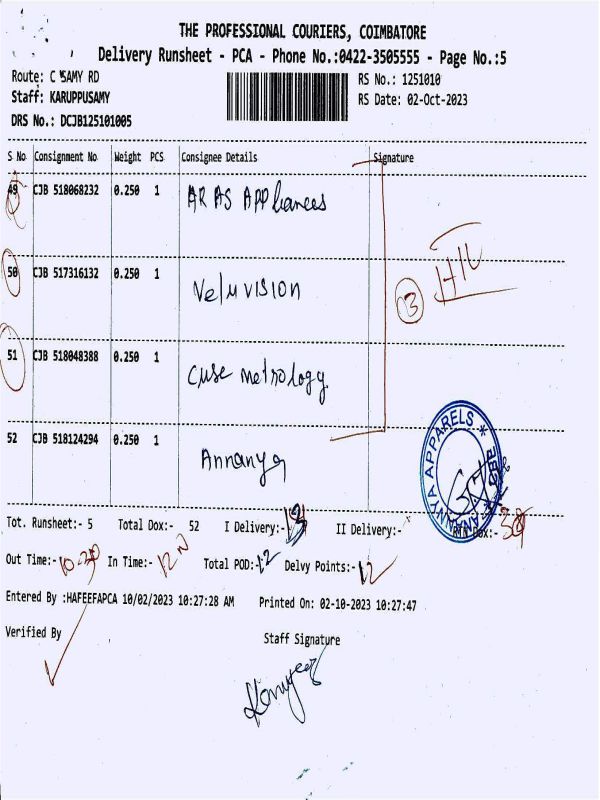 THE PROFESSIONAL COURIERS, COIMBATORE
Delivery Runsheet - PCA - Phone No.:0422-3505555 - Page No.:5
Route: C SAMY RD RS No.: 1251010
Staff: KARUPPUSAMY RS Date: 02-Oct-2023
DRS No.: DCJB125101005
S No Consignment No Weight PCS Consignee Details Signature
49 CJB 518068232 0.250 1 ARAS APPliances
50 CJB 517316132 0.250 1 Velu VISION
51 CJB 518048388 0.250 1 Cuse metrology
52 CJB 518124294 0.250 1 Annanya
3
ANNANYA APPARELS
Tot. Runsheet:- 5 Total Dox:- 52 I Delivery:- 13 II Delivery:- RTN Dox:-
Out Time:- In Time:- Total POD:- 12 Delvy Points:- 12
Entered By :HAFEEFAPCA 10/02/2023 10:27:28 AM Printed On: 02-10-2023 10:27:47
Verified By Staff Signature